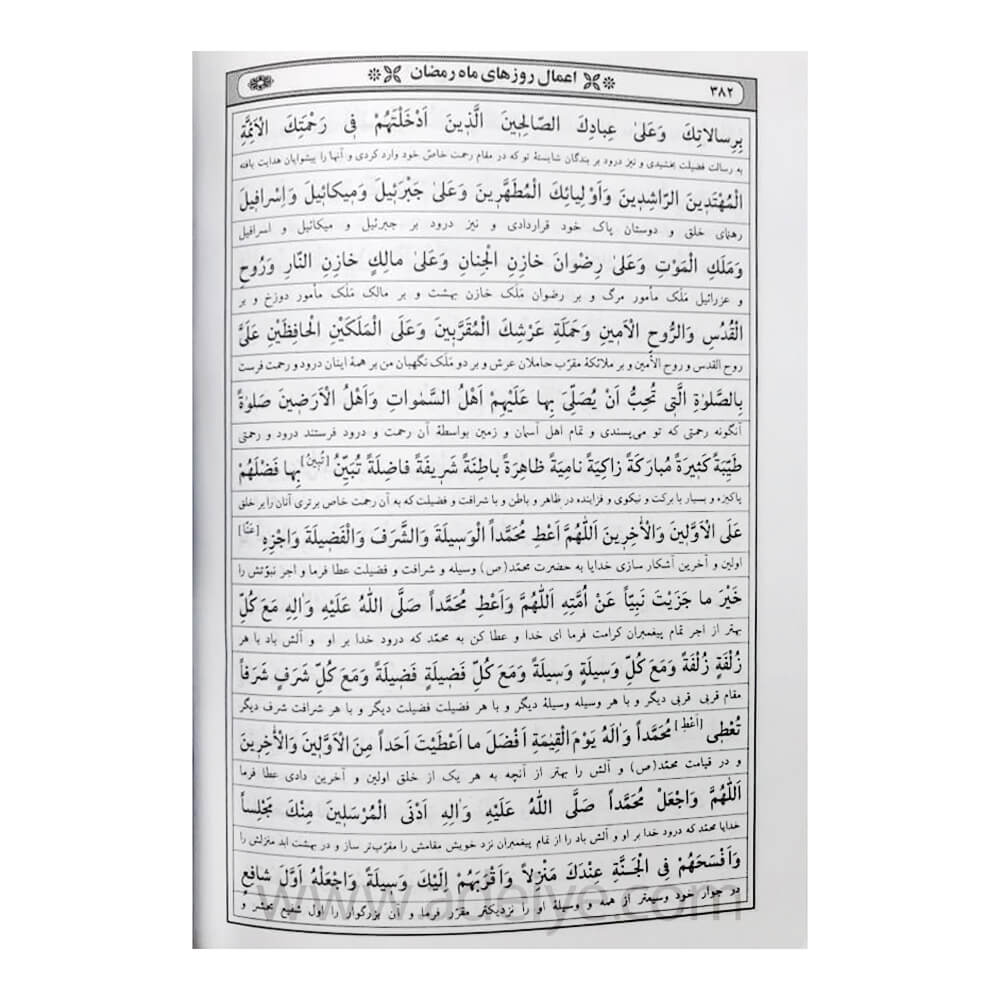 ۳۸۲
اعمال روزهای ماه رمضان
بِرِسالاتِكَ وَعَلىٰ عِبادِكَ الصّالِحينَ الَّذينَ اَدْخَلْتَهُمْ فى رَحْمَتِكَ الْاَئِمَّةِ
به رسالت فضیلت بخشیدی و نیز درود بر بندگان شایستهٔ تو که در مقام رحمت خاصّ خود وارد کردی و آنها را پیشوایان هدایت یافته
الْمُهْتَدينَ الرّاشِدينَ وَاَوْلِيائِكَ الْمُطَهَّرينَ وَعَلىٰ جَبْرَئيلَ وَميكائيلَ وَاِسْرافيلَ
رهنمای خلق و دوستان پاک خود قراردادی و نیز درود بر جبرئیل و میکائیل و اسرافیل
وَمَلَكِ الْمَوْتِ وَعَلىٰ رِضْوانَ خازِنِ الْجِنانِ وَعَلىٰ مالِكٍ خازِنِ النّارِ وَرُوحِ
و عزرائیل مَلَک مأمور مرگ و بر رضوان مَلَک خازن بهشت و بر مالک مَلَک مأمور دوزخ و بر
الْقُدُسِ وَالرُّوحِ الْاَمينِ وَحَمَلَةِ عَرْشِكَ الْمُقَرَّبينَ وَعَلَى الْمَلَكَيْنِ الْحافِظَيْنِ عَلَىَّ
روح القدس و روح الأمین و بر ملائکهٔ مقرّب حاملان عرش و بر دو مَلَک نگهبان من بر همهٔ اینان درود و رحمت فرست
بِالصَّلوٰةِ الَّتى تُحِبُّ اَنْ يُصَلِّىَ بِها عَلَيْهِمْ اَهْلُ السَّمٰواتِ وَاَهْلُ الْاَرَضينَ صَلوٰةً
آنگونه رحمتی که تو می‌پسندی و تمام اهل آسمان و زمین بواسطهٔ آن رحمت و درود فرستند درود و رحمتی
طَيِّبَةً كَثيرَةً مُبارَكَةً زاكِيَةً نامِيَةً ظاهِرَةً باطِنَةً شَريفَةً فاضِلَةً تُبَيِّنُ [تُبينُ] بِها فَضْلَهُمْ
پاکیزه و بسیار با برکت و نیکوی و فزاینده در ظاهر و باطن و با شرافت و فضیلت که به آن رحمت خاص برتری آنان را بر خلق
عَلَى الْاَوَّلينَ وَالْاٰخِرينَ اَللّٰهُمَّ اَعْطِ مُحَمَّداً الْوَسيلَةَ وَالشَّرَفَ وَالْفَضيلَةَ وَاجْزِهِ [عَنّا]
اولین و آخرین آشکار سازی خدایا به حضرت محمّد(ص) وسیله و شرافت و فضیلت عطا فرما و اجر نبوّتش را
خَيْرَ ما جَزَيْتَ نَبِيّاً عَنْ اُمَّتِهِ اَللّٰهُمَّ وَاَعْطِ مُحَمَّداً صَلَّى اللهُ عَلَيْهِ وَاٰلِهِ مَعَ كُلِّ
بهتر از اجر تمام پیغمبران کرامت فرما ای خدا و عطا کن به محمّد که درود خدا بر او و آلش باد با هر
زُلْفَةٍ زُلْفَةً وَمَعَ كُلِّ وَسيلَةٍ وَسيلَةً وَمَعَ كُلِّ فَضيلَةٍ فَضيلَةً وَمَعَ كُلِّ شَرَفٍ شَرَفاً
مقام قربی قربی دیگر و با هر وسیله وسیلهٔ دیگر و با هر فضیلت فضیلت دیگر و با هر شرافت شرف دیگر
تُعْطى [اَعْطِ] مُحَمَّداً وَاٰلَهُ يَوْمَ الْقِيٰمَةِ اَفْضَلَ ما اَعْطَيْتَ اَحَداً مِنَ الْاَوَّلينَ وَالْاٰخِرينَ
و در قیامت محمّد(ص) و آلش را بهتر از آنچه به هر یک از خلق اولین و آخرین دادی عطا فرما
اَللّٰهُمَّ وَاجْعَلْ مُحَمَّداً صَلَّى اللهُ عَلَيْهِ وَاٰلِهِ اَدْنَى الْمُرْسَلينَ مِنْكَ مَجْلِساً
خدایا محمّد که درود خدا بر او و آلش باد را از تمام پیغمبران نزد خویش مقامش را مقرّب‌تر ساز و در بهشت ابد منزلش را
وَاَفْسَحَهُمْ فِى الْجَنَّةِ عِنْدَكَ مَنْزِلاً وَاَقْرَبَهُمْ اِلَيْكَ وَسيلَةً وَاجْعَلْهُ اَوَّلَ شافِعٍ
در جوار خود وسیعتر از همه و وسیلهٔ او را نزدیکتر مقرّر فرما و آن بزرگوار را اول شفیع محشر و
www.adelye.com